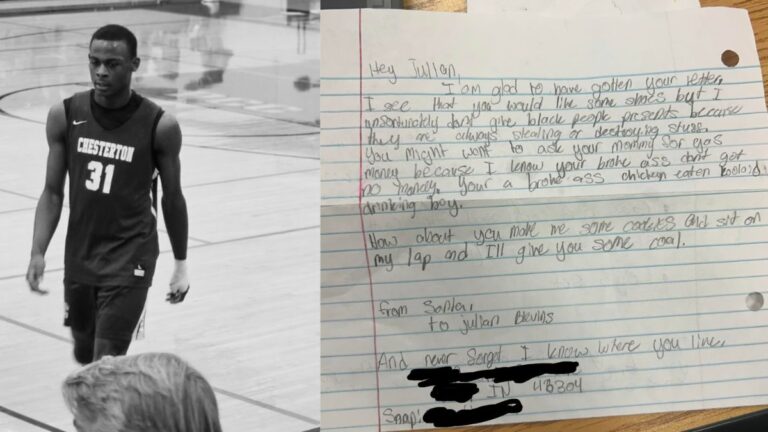 CHESTERTON
31
Hey Julian,
I am glad to have gotten your letter.
I see that you would like some shoes but I
unfortunately dont give black people presents because
they are always stealing or destroying stuff.
You might want to ask your mommy for gas
money because I know your broke ass dont got
no money. Your a broke ass chicken eaten koolaid
drinking boy.
How about you make me some cookies and sit on
my lap and I'll give you some coal.
from Santa,
to julian Blevins
And never forget I know where you live.
IN 46304
Snap: